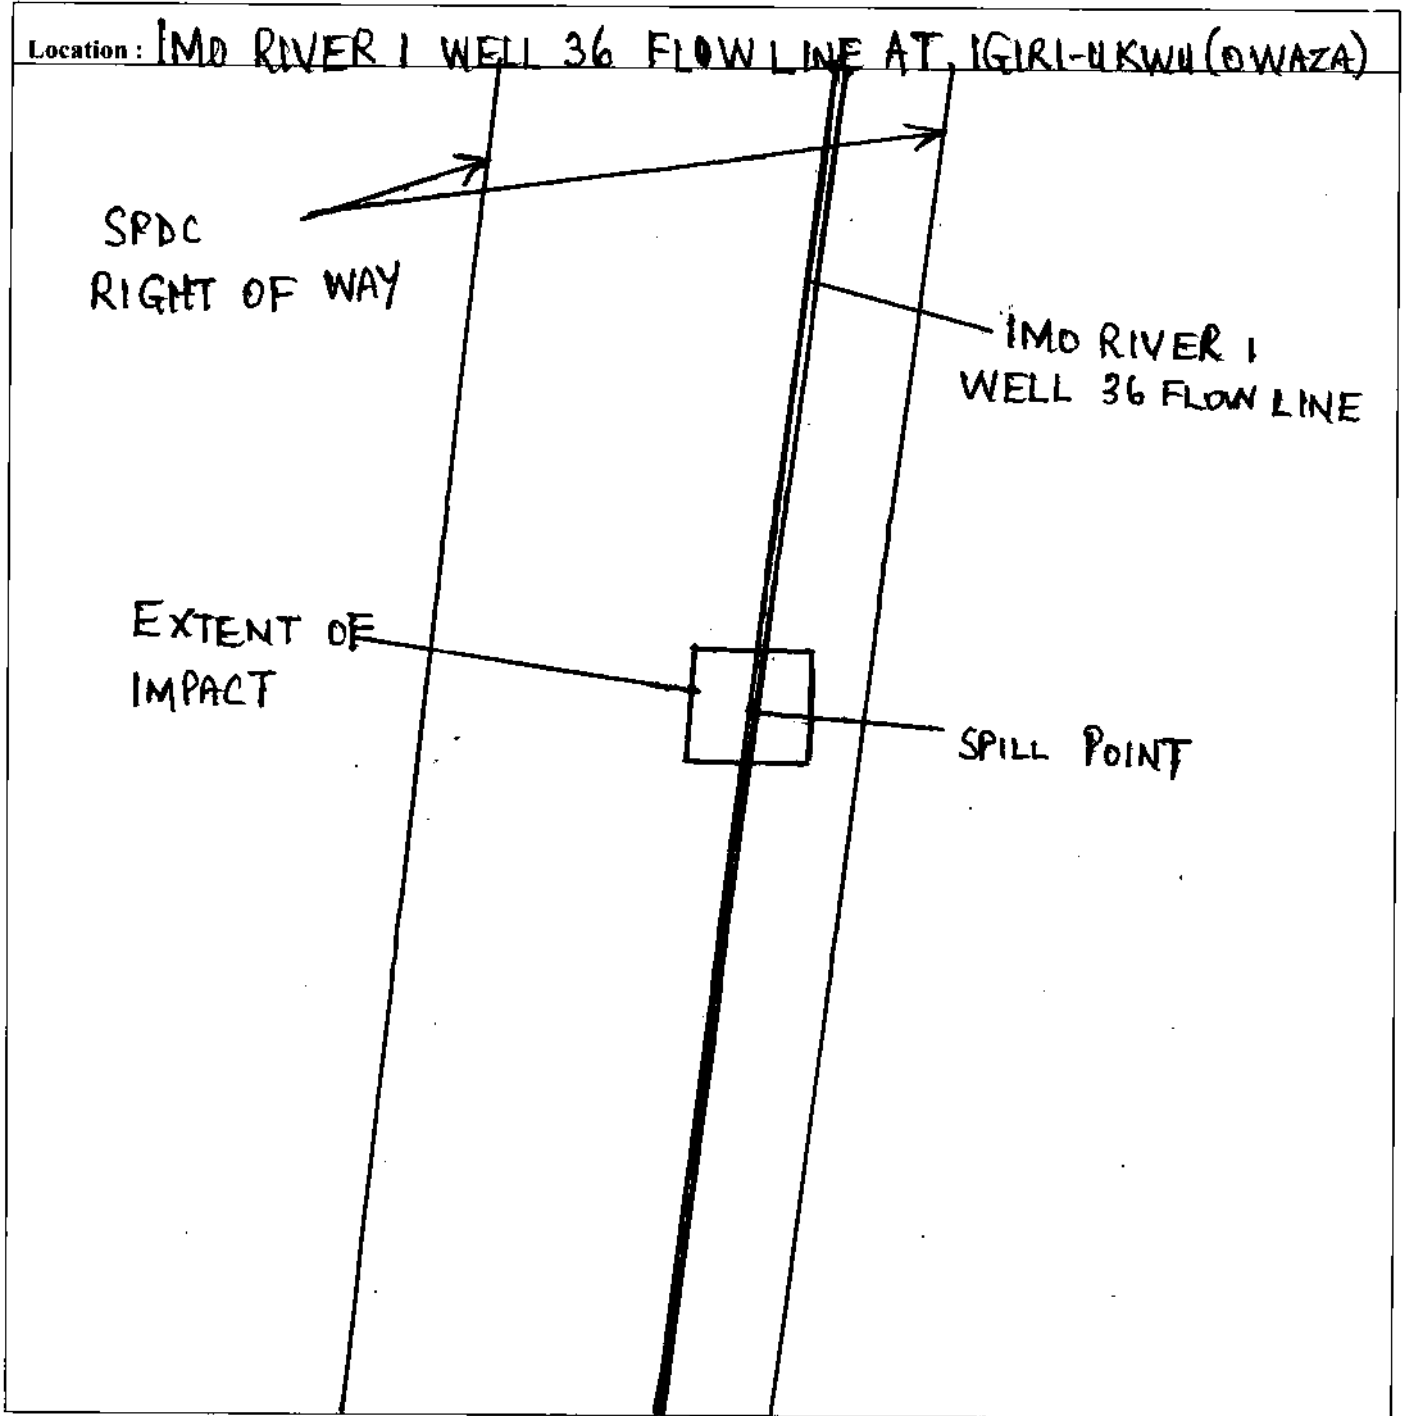 Location : IMO RIVER 1 WELL 36 FLOW LINE AT IGIRI-UKWU (OWAZA)
SPDC
RIGHT OF WAY
IMO RIVER 1
WELL 36 FLOW LINE
EXTENT OF
IMPACT
SPILL POINT